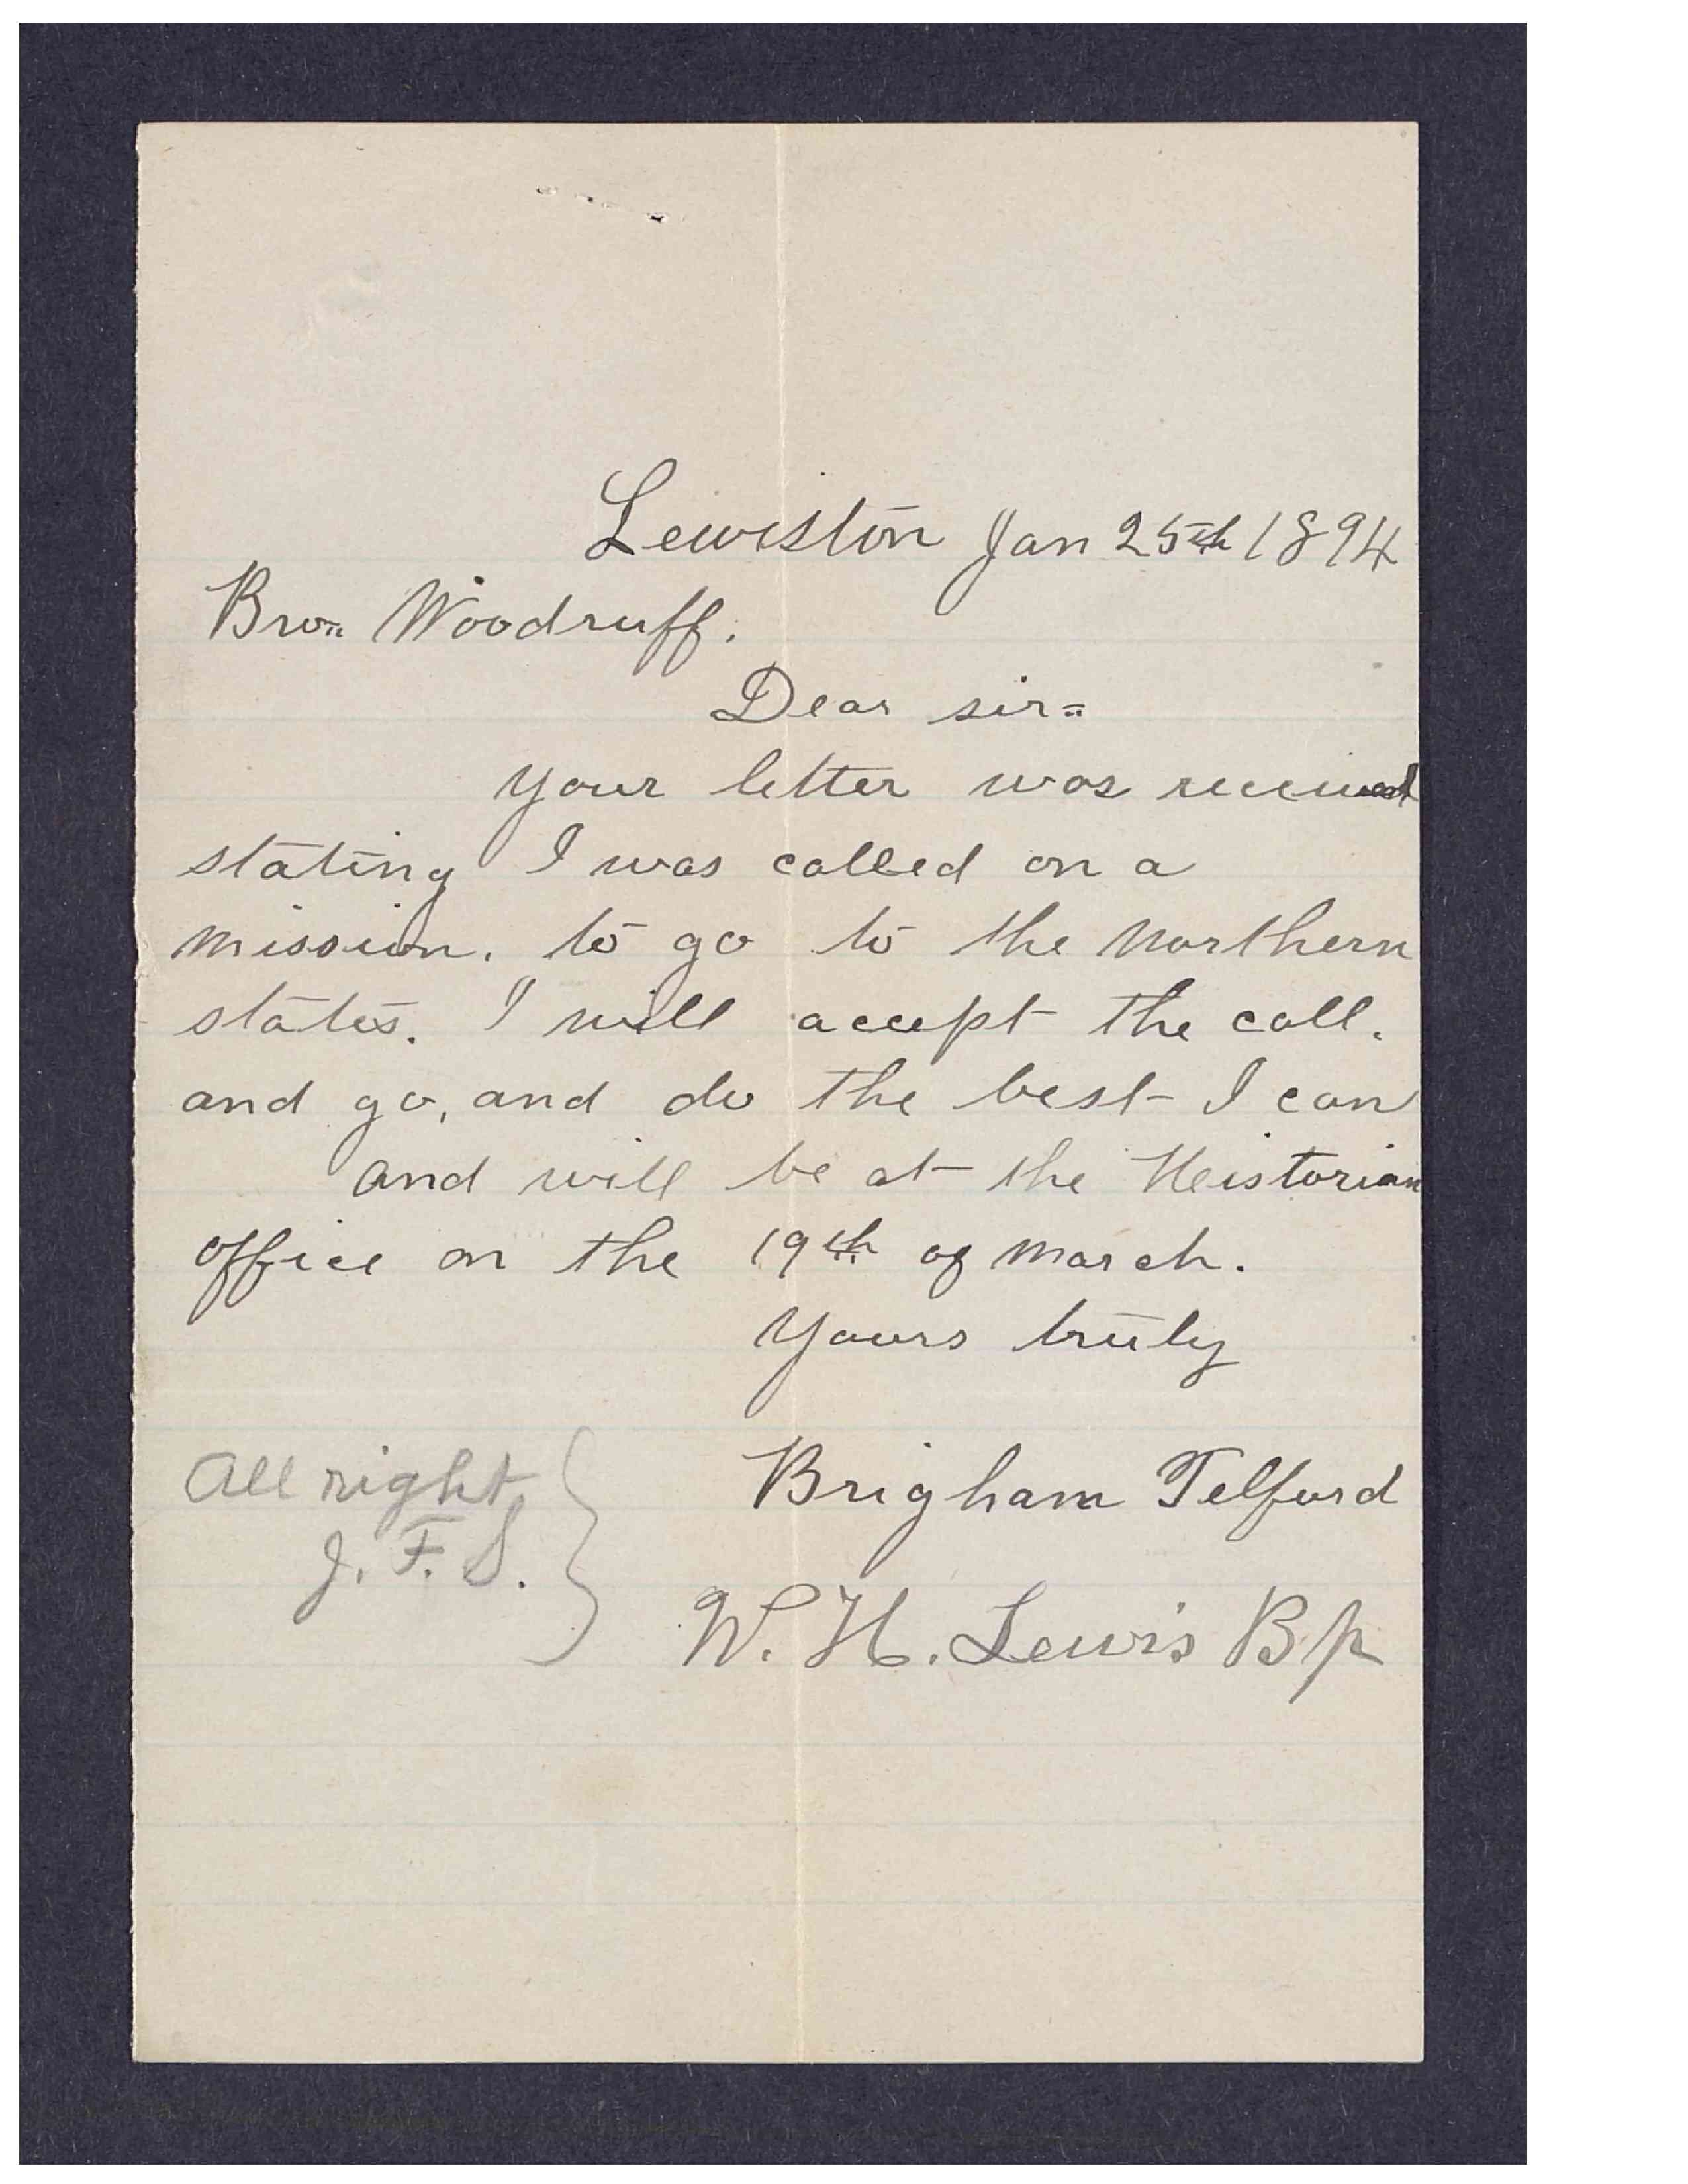 Lewiston Jan 25th 1894
Bro= Woodruff.
Dear sir=
Your letter was received
stating I was called on a
mission. to go to the Northern
states. I will accept the call.
and go, and do the best I can
and will be at the Heistorian
office on the 19th of March.
Yours truly
Brigham Telford
All right
J. F. S.
W. H. Lewis Bp